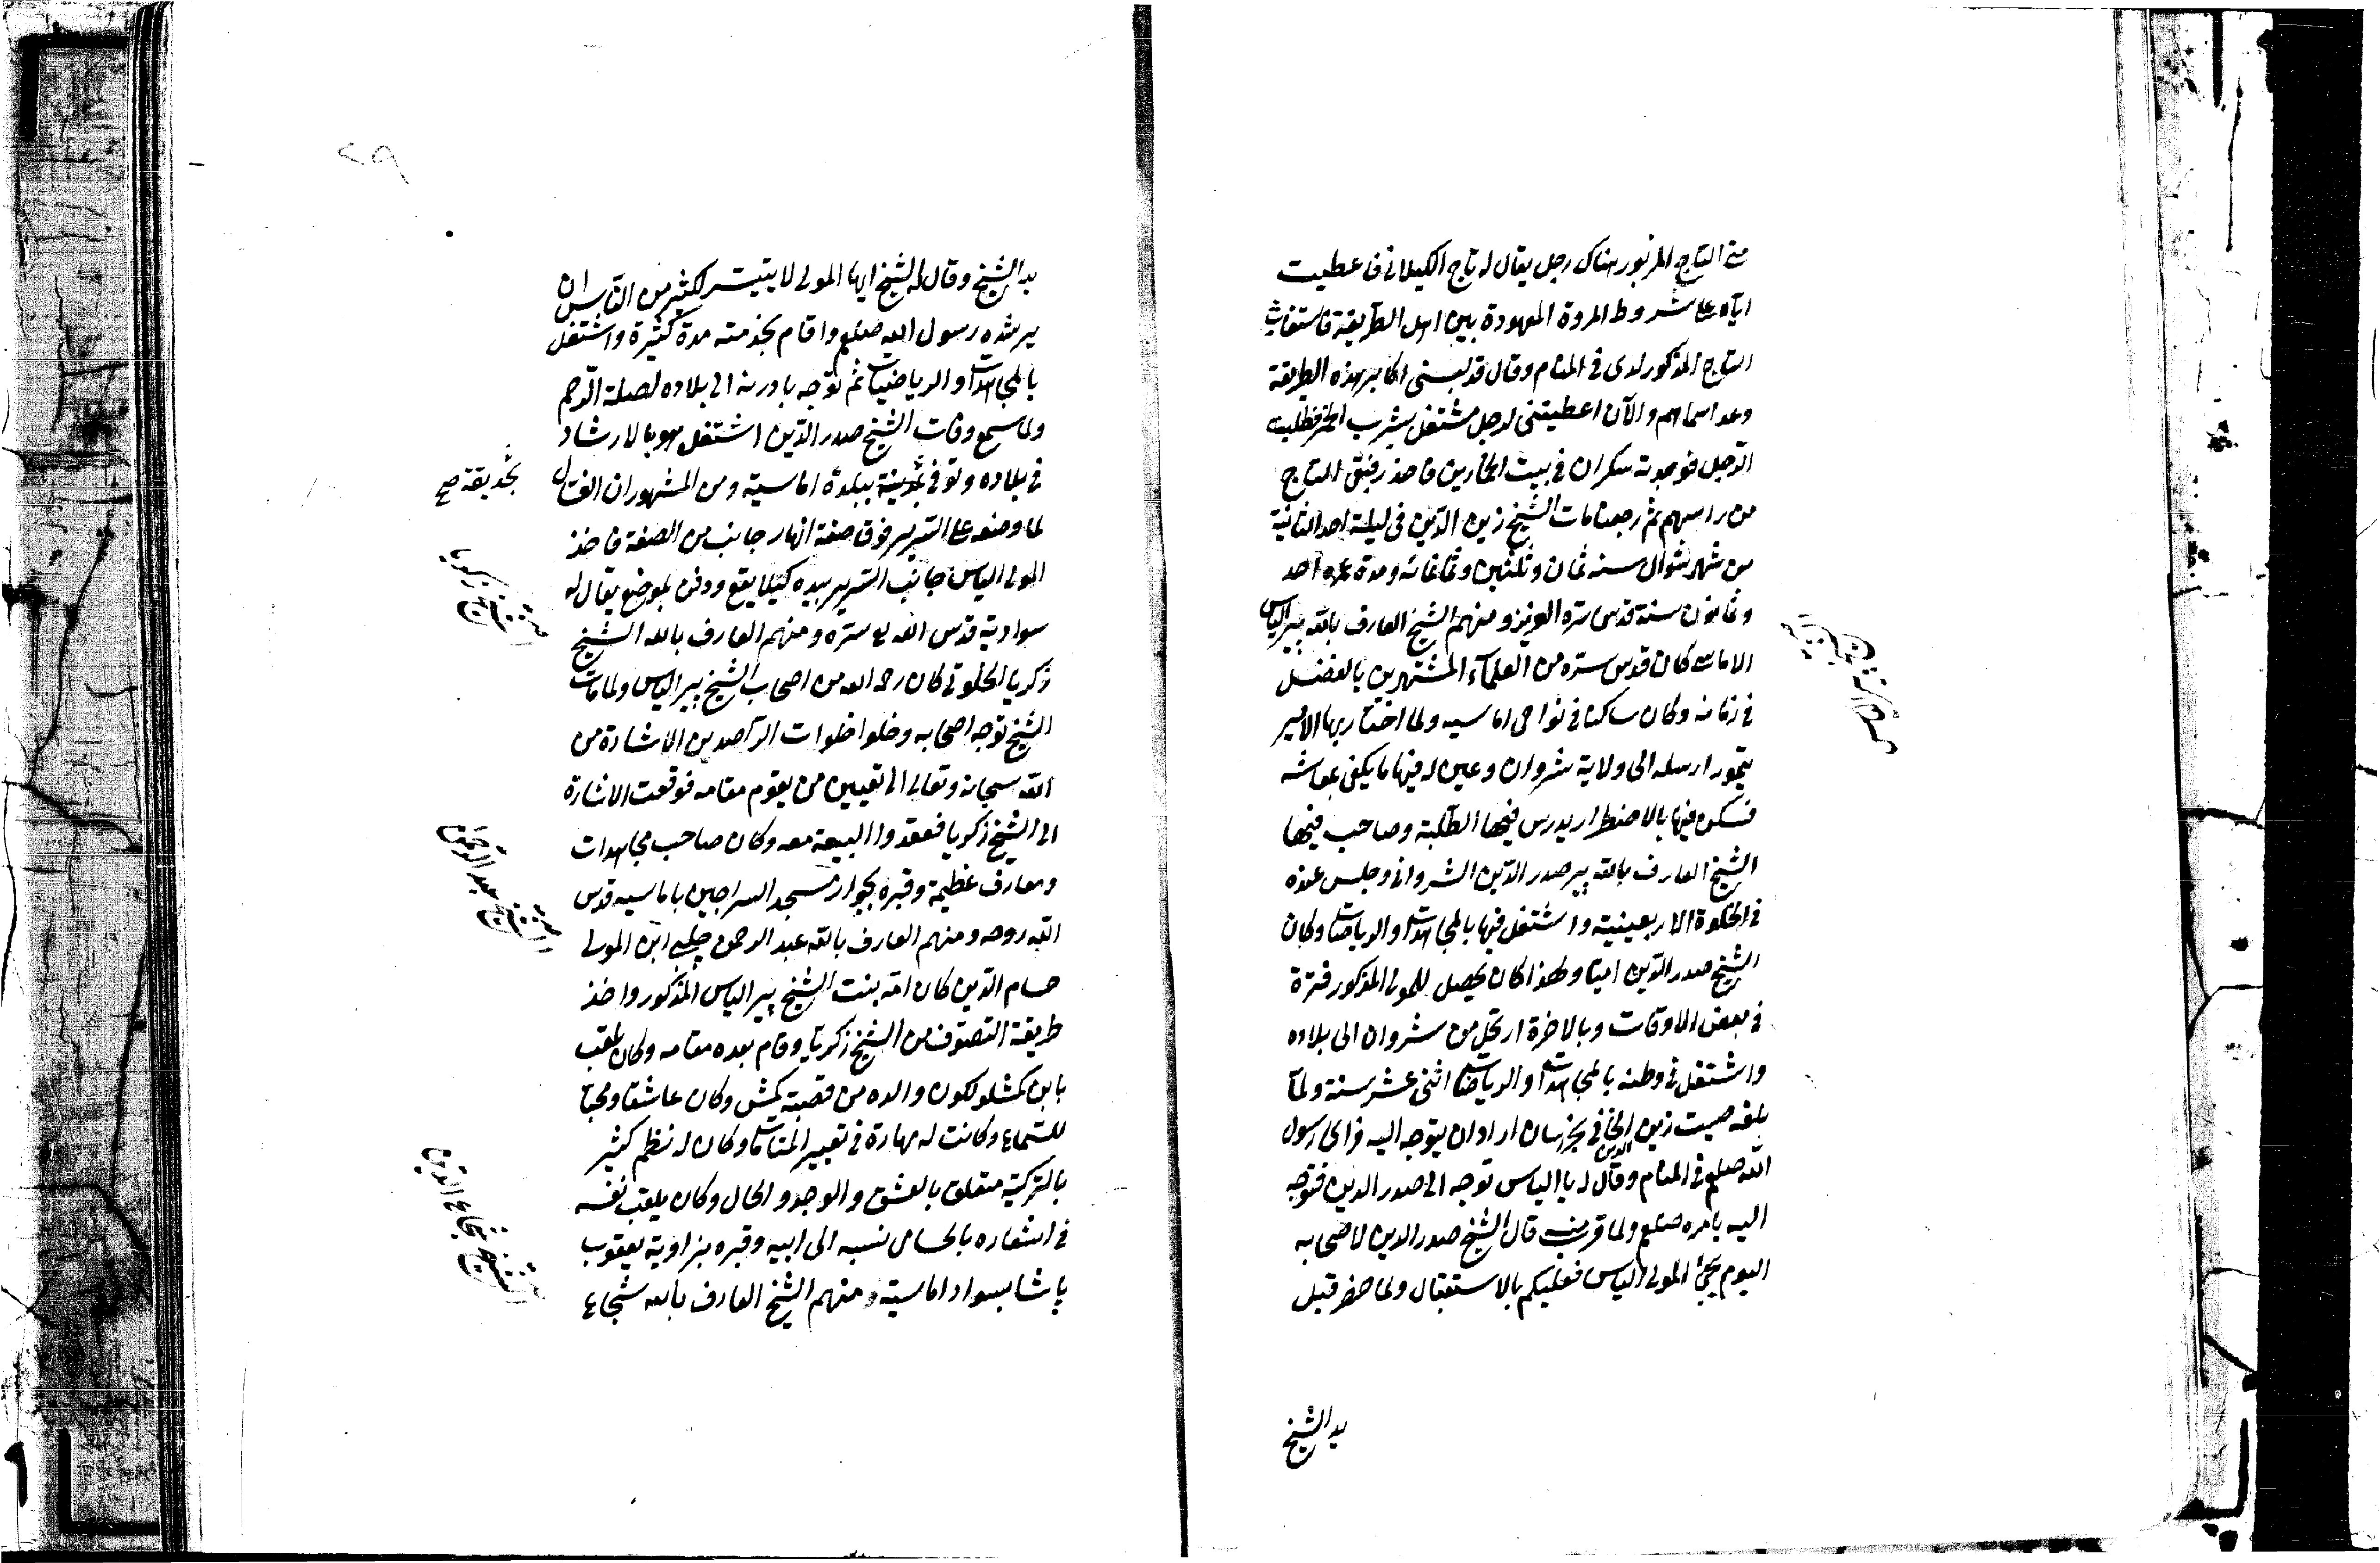 مني التاج المزبور هناك رجل يقال له تاج الكيلاني فاعطيت
اياه على شروط المروة المعهودة بين اهل الطريقة فاستغاث
التاج المذكور لدي في المنام وقال قد لبسني اكابر هذه الطريقة
وعد اسماءهم والآن اعطيتني لرجل مشتغل بشرب الخمر فطلبت
الرجل فوجدته سكران في بيت الخمارين فاخذ رفيقي التاج
من راسهم ثم رجعنا مات الشيخ زين الدين في ليلة احد الثانية
من شهر شوال سنة ثمان وثلثين وثمانمائة ومدة عمره احد
وثمانون سنة قدس سره العزيز ومنهم الشيخ العارف بالله پير الياس
الاماسي كان قدس سره من العلماء المشتهرين بالفضل
في زمانه وكان ساكنا في نواحي اماسيه ولما اختار بها الامير
تيمور ارسله الى ولاية شروان وعين له فيها ما يكفي بمعاشه
فسكن فيها بالاضطرار يدرس فيها الطلبة وصاحب فيها
الشيخ العارف بالله پير صدر الدين الشرواني وجلس عنده
في الخلوة الاربعينية واشتغل فيها بالمجاهدات والرياضات وكان
الشيخ صدر الدين اميا ولهذا كان يحصل للمولى المذكور فترة
في بعض الاوقات وبالاخرة ارتحل من شروان الى بلاده
واشتغل في وطنه بالمجاهدات والرياضات اثنى عشر سنة ولما
بلغه صيت زين الدين الخافي بخراسان اراد ان يتوجه اليه فراى رسول
الله صلعم في المنام وقال له يا الياس توجه الى صدر الدين فتوجه
اليه بامره صلعم ولما قرب منه قال الشيخ صدر الدين لاصحابه
اليوم يجئ المولى الياس فعليكم بالاستقبال ولما حضر قبل
يد الشيخ
٢٩
يد الشيخ وقال له الشيخ ايها المولى لا يتيسر لكثير من الناس ان
يرشده رسول الله صلعم واقام بخدمته مدة كثيرة واشتغل
بالمجاهدات والرياضيات ثم توجه باذنه الى بلاده لصلة الرحم
ولما سمع وفات الشيخ صدر الدين اشتغل هو بالارشاد
في بلاده وتوفي بمدينة ببلدة اماسية ومن المشهور ان الغسال
لما وضعه على السرير فوق صفة انهار جانب من الصفة فاخذ
المولى الياس جانب السرير بيده كيلا يقع ودفن بموضع يقال له
سوادية قدس الله تع سره ومنهم العارف بالله الشيخ
زكريا الخلوتي كان رحمه الله من اصحاب الشيخ پير الياس ولما مات
الشيخ توجه اصحابه ودخلوا خلوات الراصدين الاشارة من
الله سبحانه وتعالى الى تعيين من يقوم مقامه فوقعت الاشارة
الى الشيخ زكريا فعقدوا البيعة معه وكان صاحب مجاهدات
ومعارف عظيمة وقبره بجوار مسجد السراجين باماسيه قدس
الله روحه ومنهم العارف بالله عبد الرحمن چلبي ابن المولى
حسام الدين كان امه بنت الشيخ پير الياس المذكور واخذ
طريقة التصوف من الشيخ زكريا وقام بعده مقامه وكان يلقب
بابن كمشلو لكون والده من قصبة كمش وكان عاشقا ومحبا
للسماع وكانت له مهارة في تعبير المنامات وكان له نظم كثير
بالتركية متعلق بالعشق والوجد والحال وكان يلقب نفسه
في اشعاره بالحسامي نسبه الى ابيه وقبره بزاوية يعقوب
پاشا بسواد اماسية ومنهم الشيخ العارف بالله شجاع
بحديقة صح
الشيخ زكريا
الشيخ عبد الرحمن
الشيخ شجاع الدين